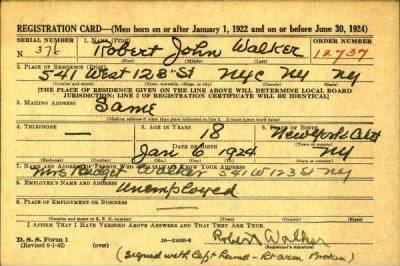 REGISTRATION CARD—(Men born on or after January 1, 1922 and on or before June 30, 1924)
SERIAL NUMBER 1. NAME (Print) ORDER NUMBER
376 Robert John Walker 12737
(First) (Middle) (Last)
2. PLACE OF RESIDENCE (Print)
541 West 123 St NYC NY NY
(Number and street) (Town, township, village, or city) (County) (State)
[THE PLACE OF RESIDENCE GIVEN ON THE LINE ABOVE WILL DETERMINE LOCAL BOARD
JURISDICTION; LINE 2 OF REGISTRATION CERTIFICATE WILL BE IDENTICAL]
3. MAILING ADDRESS
Same
(Mailing address if other than place indicated on line 2. If same insert word same)
4. TELEPHONE 5. AGE IN YEARS 6. PLACE OF BIRTH
— 18 New York
DATE OF BIRTH
Jan 6 1924 NY
(Exchange) (Number) (Mo.) (Day) (Yr.) (State or country)
7. NAME AND ADDRESS OF PERSON WHO WILL ALWAYS KNOW YOUR ADDRESS
Mrs Walker 541 W 123 St NY
8. EMPLOYER'S NAME AND ADDRESS
Unemployed
9. PLACE OF EMPLOYMENT OR BUSINESS
(Number and street or R. F. D. number) (Town) (County) (State)
I AFFIRM THAT I HAVE VERIFIED ABOVE ANSWERS AND THAT THEY ARE TRUE.
D. S. S. Form 1
(Revised 6-1-42)
Robert Walker
(Registrant's signature)
(Signed with Left Hand - Rt arm Broken)